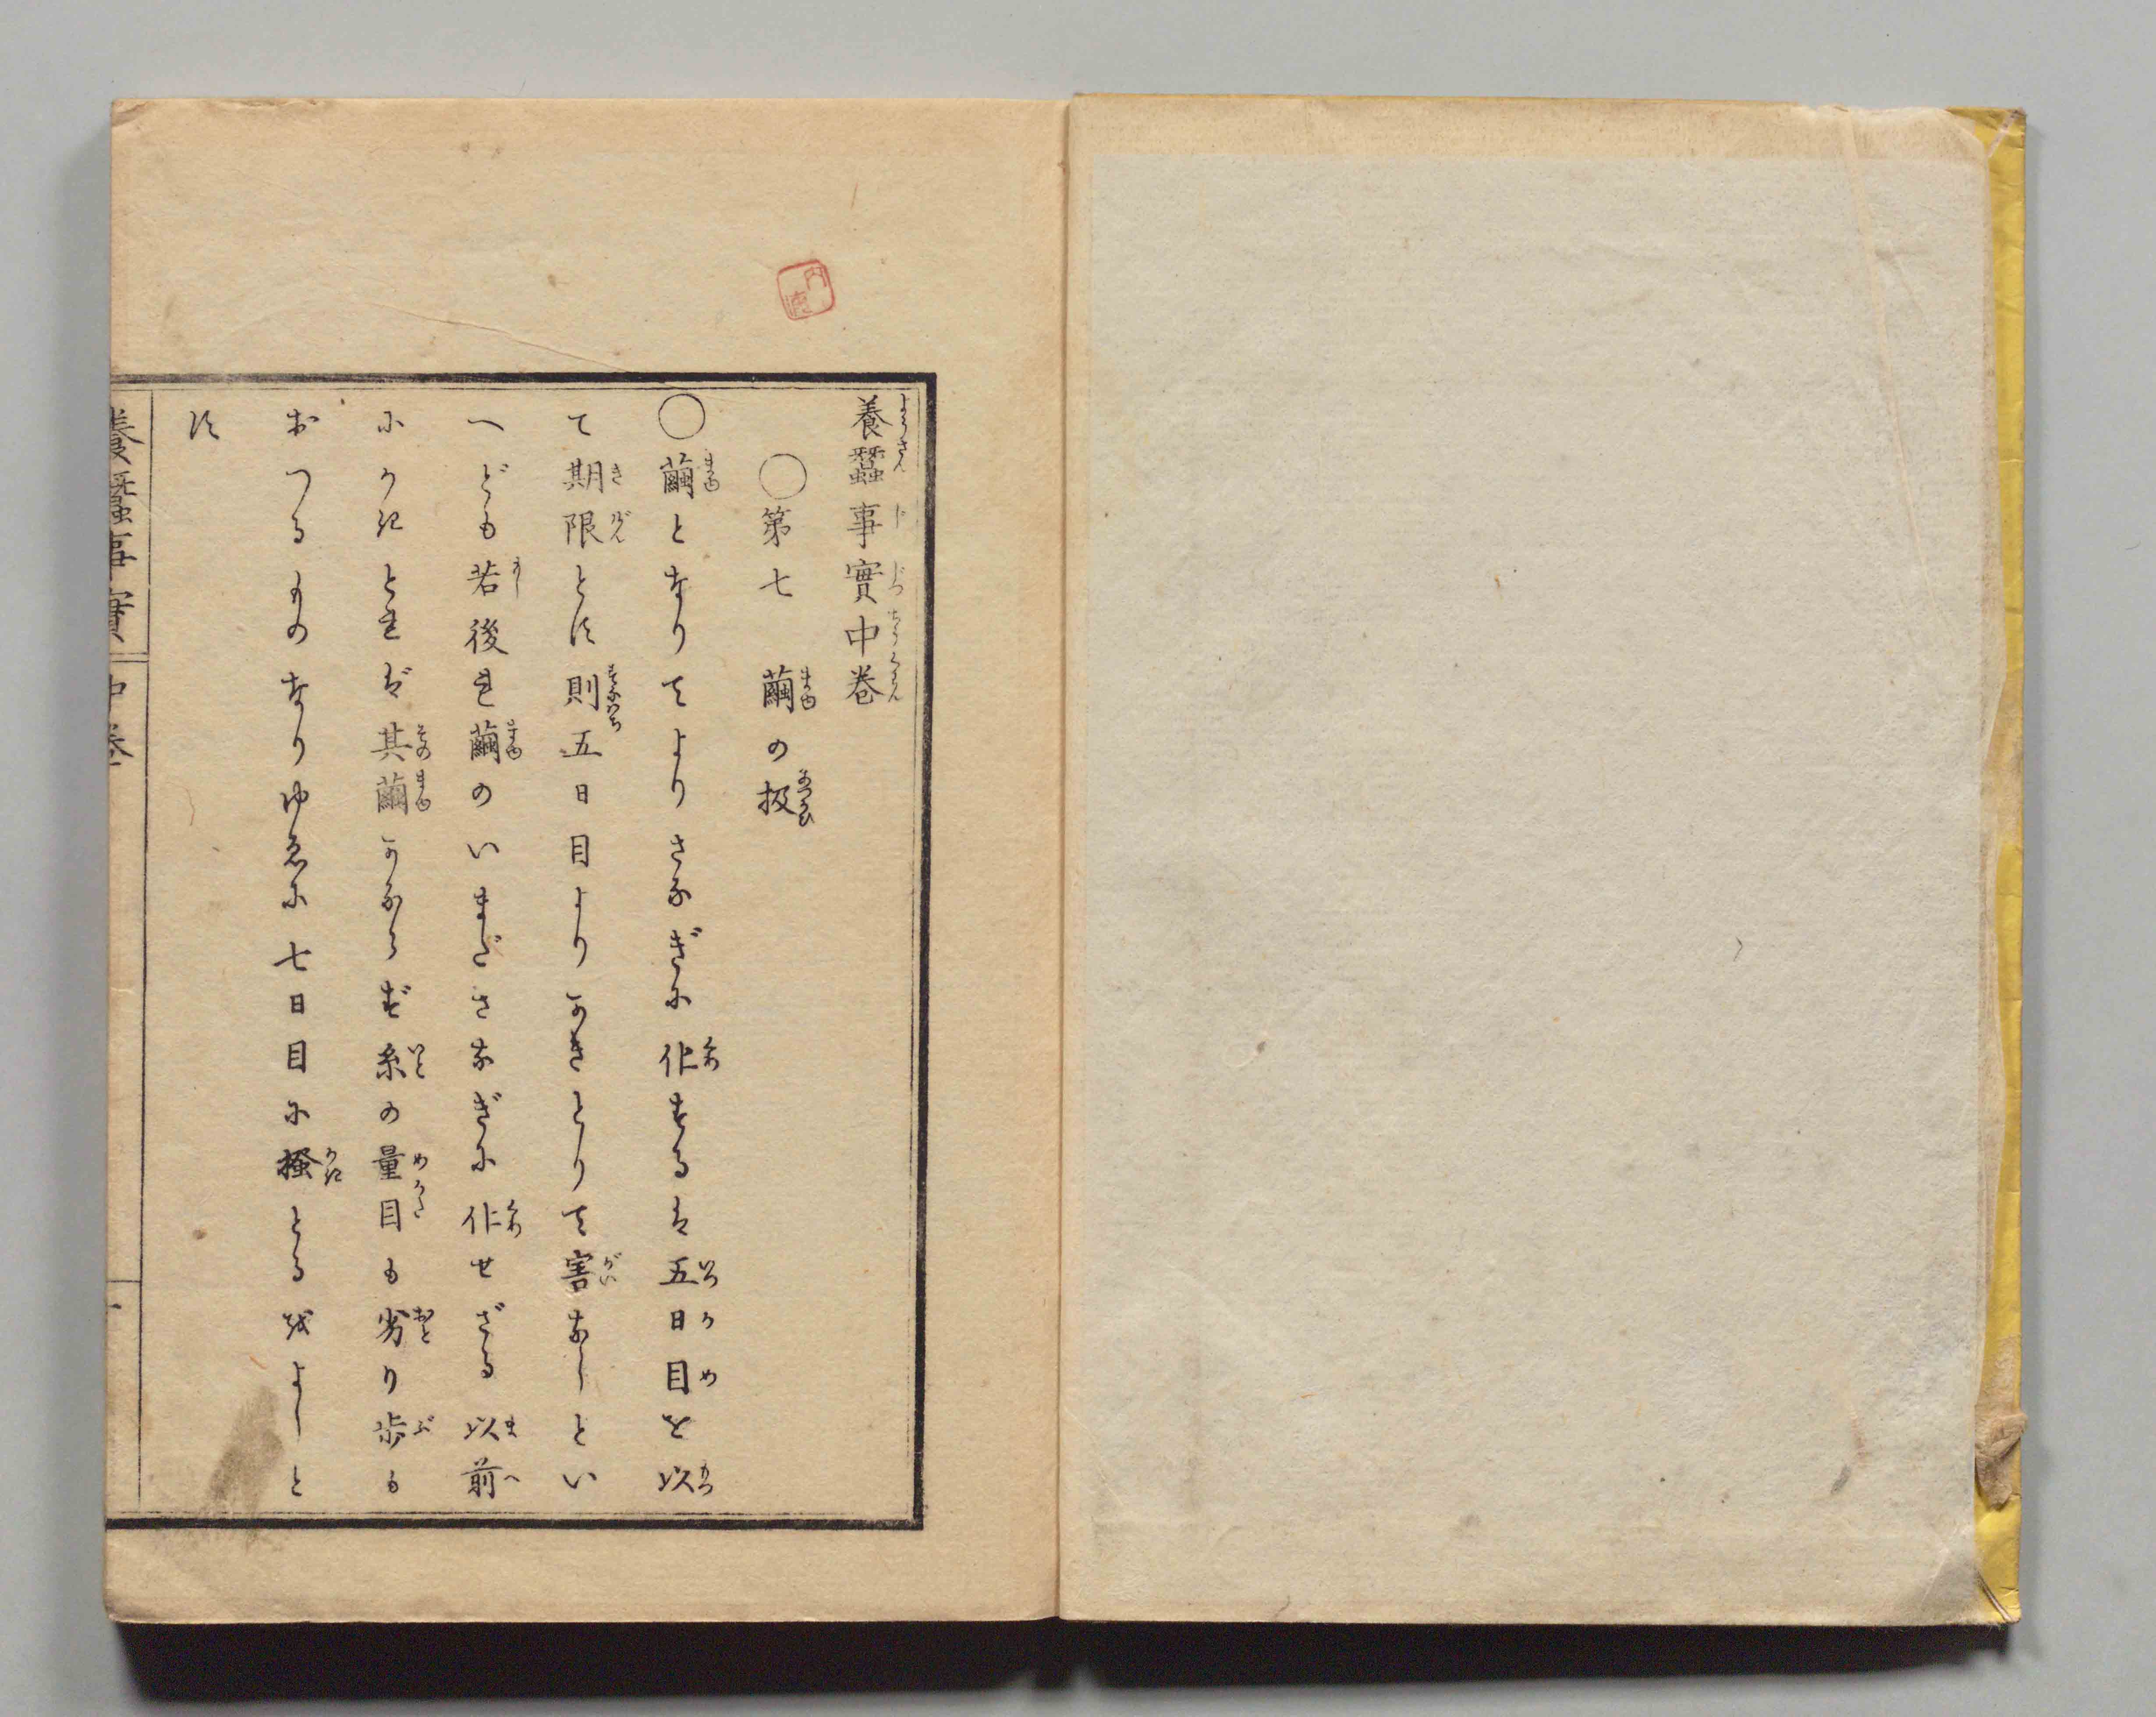 養蠶事實中卷
〇第七 繭の扱
〇繭となりてよりさなぎに化するは五日目を以
て期限とす則五日目よりかきとりて害なしとい
へども若後れ繭のいまださなぎに化せざる以前
にかきとれば其繭かならず糸の量目も劣り歩も
おつるものなりゆゑに七日目に掻とるをよしと
す
養蠶事實 中卷 一